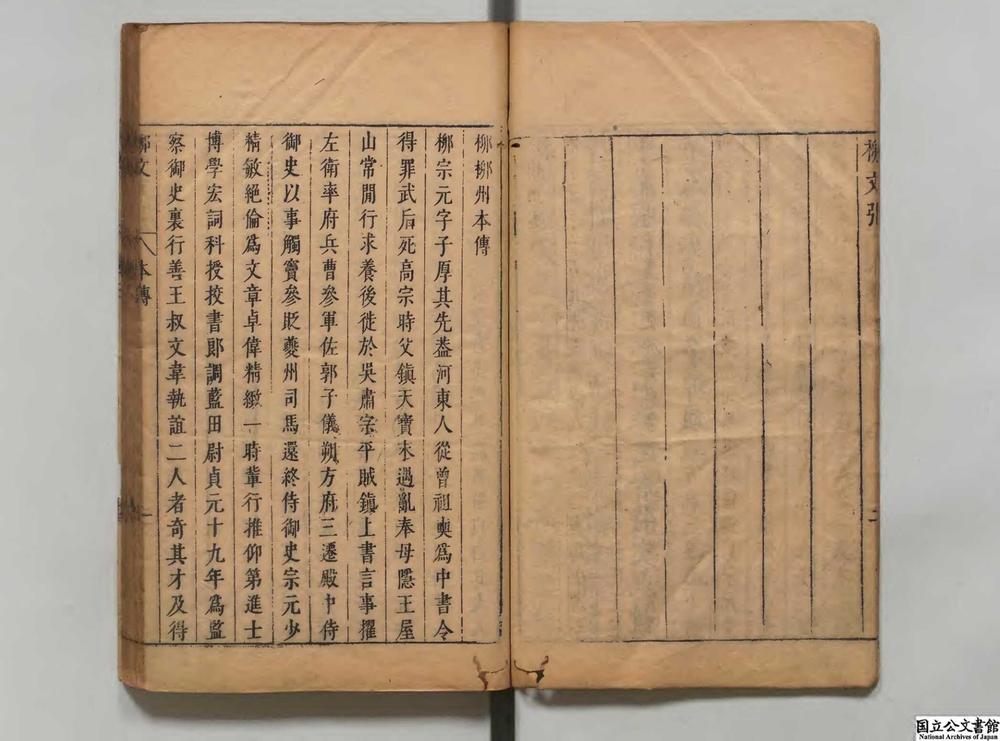 柳文引
二
柳柳州本傳
柳宗元字子厚其先葢河東人從曾祖奭爲中書令
得罪武后死高宗時父鎮天寶末遇亂奉母隱王屋
山常閒行求養後徙於吳肅宗平賊鎮上書言事擢
左衛率府兵曹參軍佐郭子儀朔方府三遷殿中侍
御史以事觸竇參貶夔州司馬還終侍御史宗元少
精敏絕倫爲文章卓偉精緻一時輩行推仰第進士
博學宏詞科授挍書郎調藍田尉貞元十九年爲監
察御史裏行善王叔文韋執誼二人者奇其才及得
柳文 本傳 一
国立公文書館
National Archives of Japan